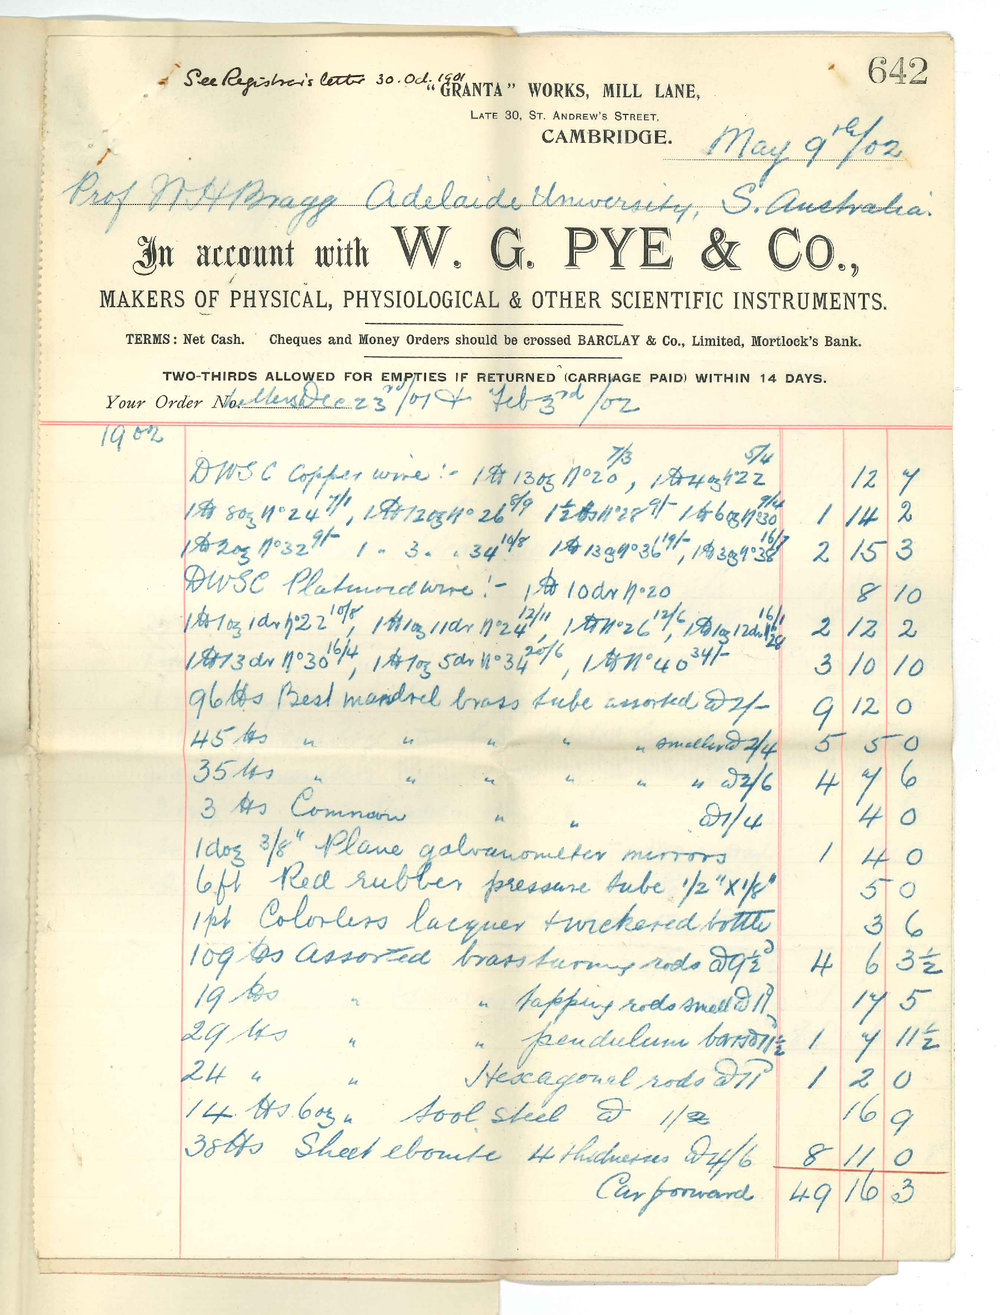 642
See Registrar's letter 30. Oct. 1901
"GRANTA" WORKS, MILL LANE,
LATE 30, ST. ANDREW'S STREET,
CAMBRIDGE.
May 9th/02
Prof W H Bragg Adelaide University, S. Australia.
In account with W. G. PYE & Co.,
MAKERS OF PHYSICAL, PHYSIOLOGICAL & OTHER SCIENTIFIC INSTRUMENTS.
TERMS: Net Cash. Cheques and Money Orders should be crossed BARCLAY & Co., Limited, Mortlock's Bank.
TWO-THIRDS ALLOWED FOR EMPTIES IF RETURNED (CARRIAGE PAID) WITHIN 14 DAYS.
Your Order No. letters Dec 23rd/01 & Feb 3rd/02
1902
DWSC Copper wire :- 1 lb 13oz No 20 7/3, 1 lb 4oz No 22 5/4 12 7
1 lb 8oz No 24 7/1, 1 lb 12oz No 26 8/9 1½ lbs No 28 9/- 1 lb 6oz No 30 9/4 1 14 2
1 lb 2oz No 32 9/- 1 . 3 . . 34 10/8 1 lb 13oz No 36 19/- , 1 lb 3oz No 38 16/7 2 15 3
DWSC Platinoid wire :- 1 lb 10dr No 20 8 10
1 lb 1oz 1dr No 22 10/8, 1 lb 1oz 11dr No 24 12/11, 1 lb No 26 12/6, 1 lb 1oz 12dr No 28 16/1 2 12 2
1 lb 13dr No 30 16/4, 1 lb 1oz 5dr No 34 20/6, 1 lb No 40 34/- 3 10 10
96 lbs Best mandrel brass tube assorted @ 2/- 9 12 0
45 lbs " " " " " smaller @ 2/4 5 5 0
35 lbs " " " " " " @ 2/6 4 7 6
3 lbs Common " " @ 1/4 4 0
1 doz 3/8" Plane galvanometer mirrors 1 4 0
6 ft Red rubber pressure tube 1/2" X 1/8" 5 0
1 pt Colorless lacquer & wickered bottle 3 6
109 lbs Assorted brass turning rods @ 9½d 4 6 3½
19 lbs " " tapping rods small @ 11d 17 5
29 lbs " " pendulum bars @ 11½ 1 7 11½
24 " " Hexagonal rods @ 11d 1 2 0
14 lbs 6oz " tool steel @ 1/2 16 9
38 lbs Sheet ebonite 4 thicknesses @ 4/6 8 11 0
Car forward 49 16 3